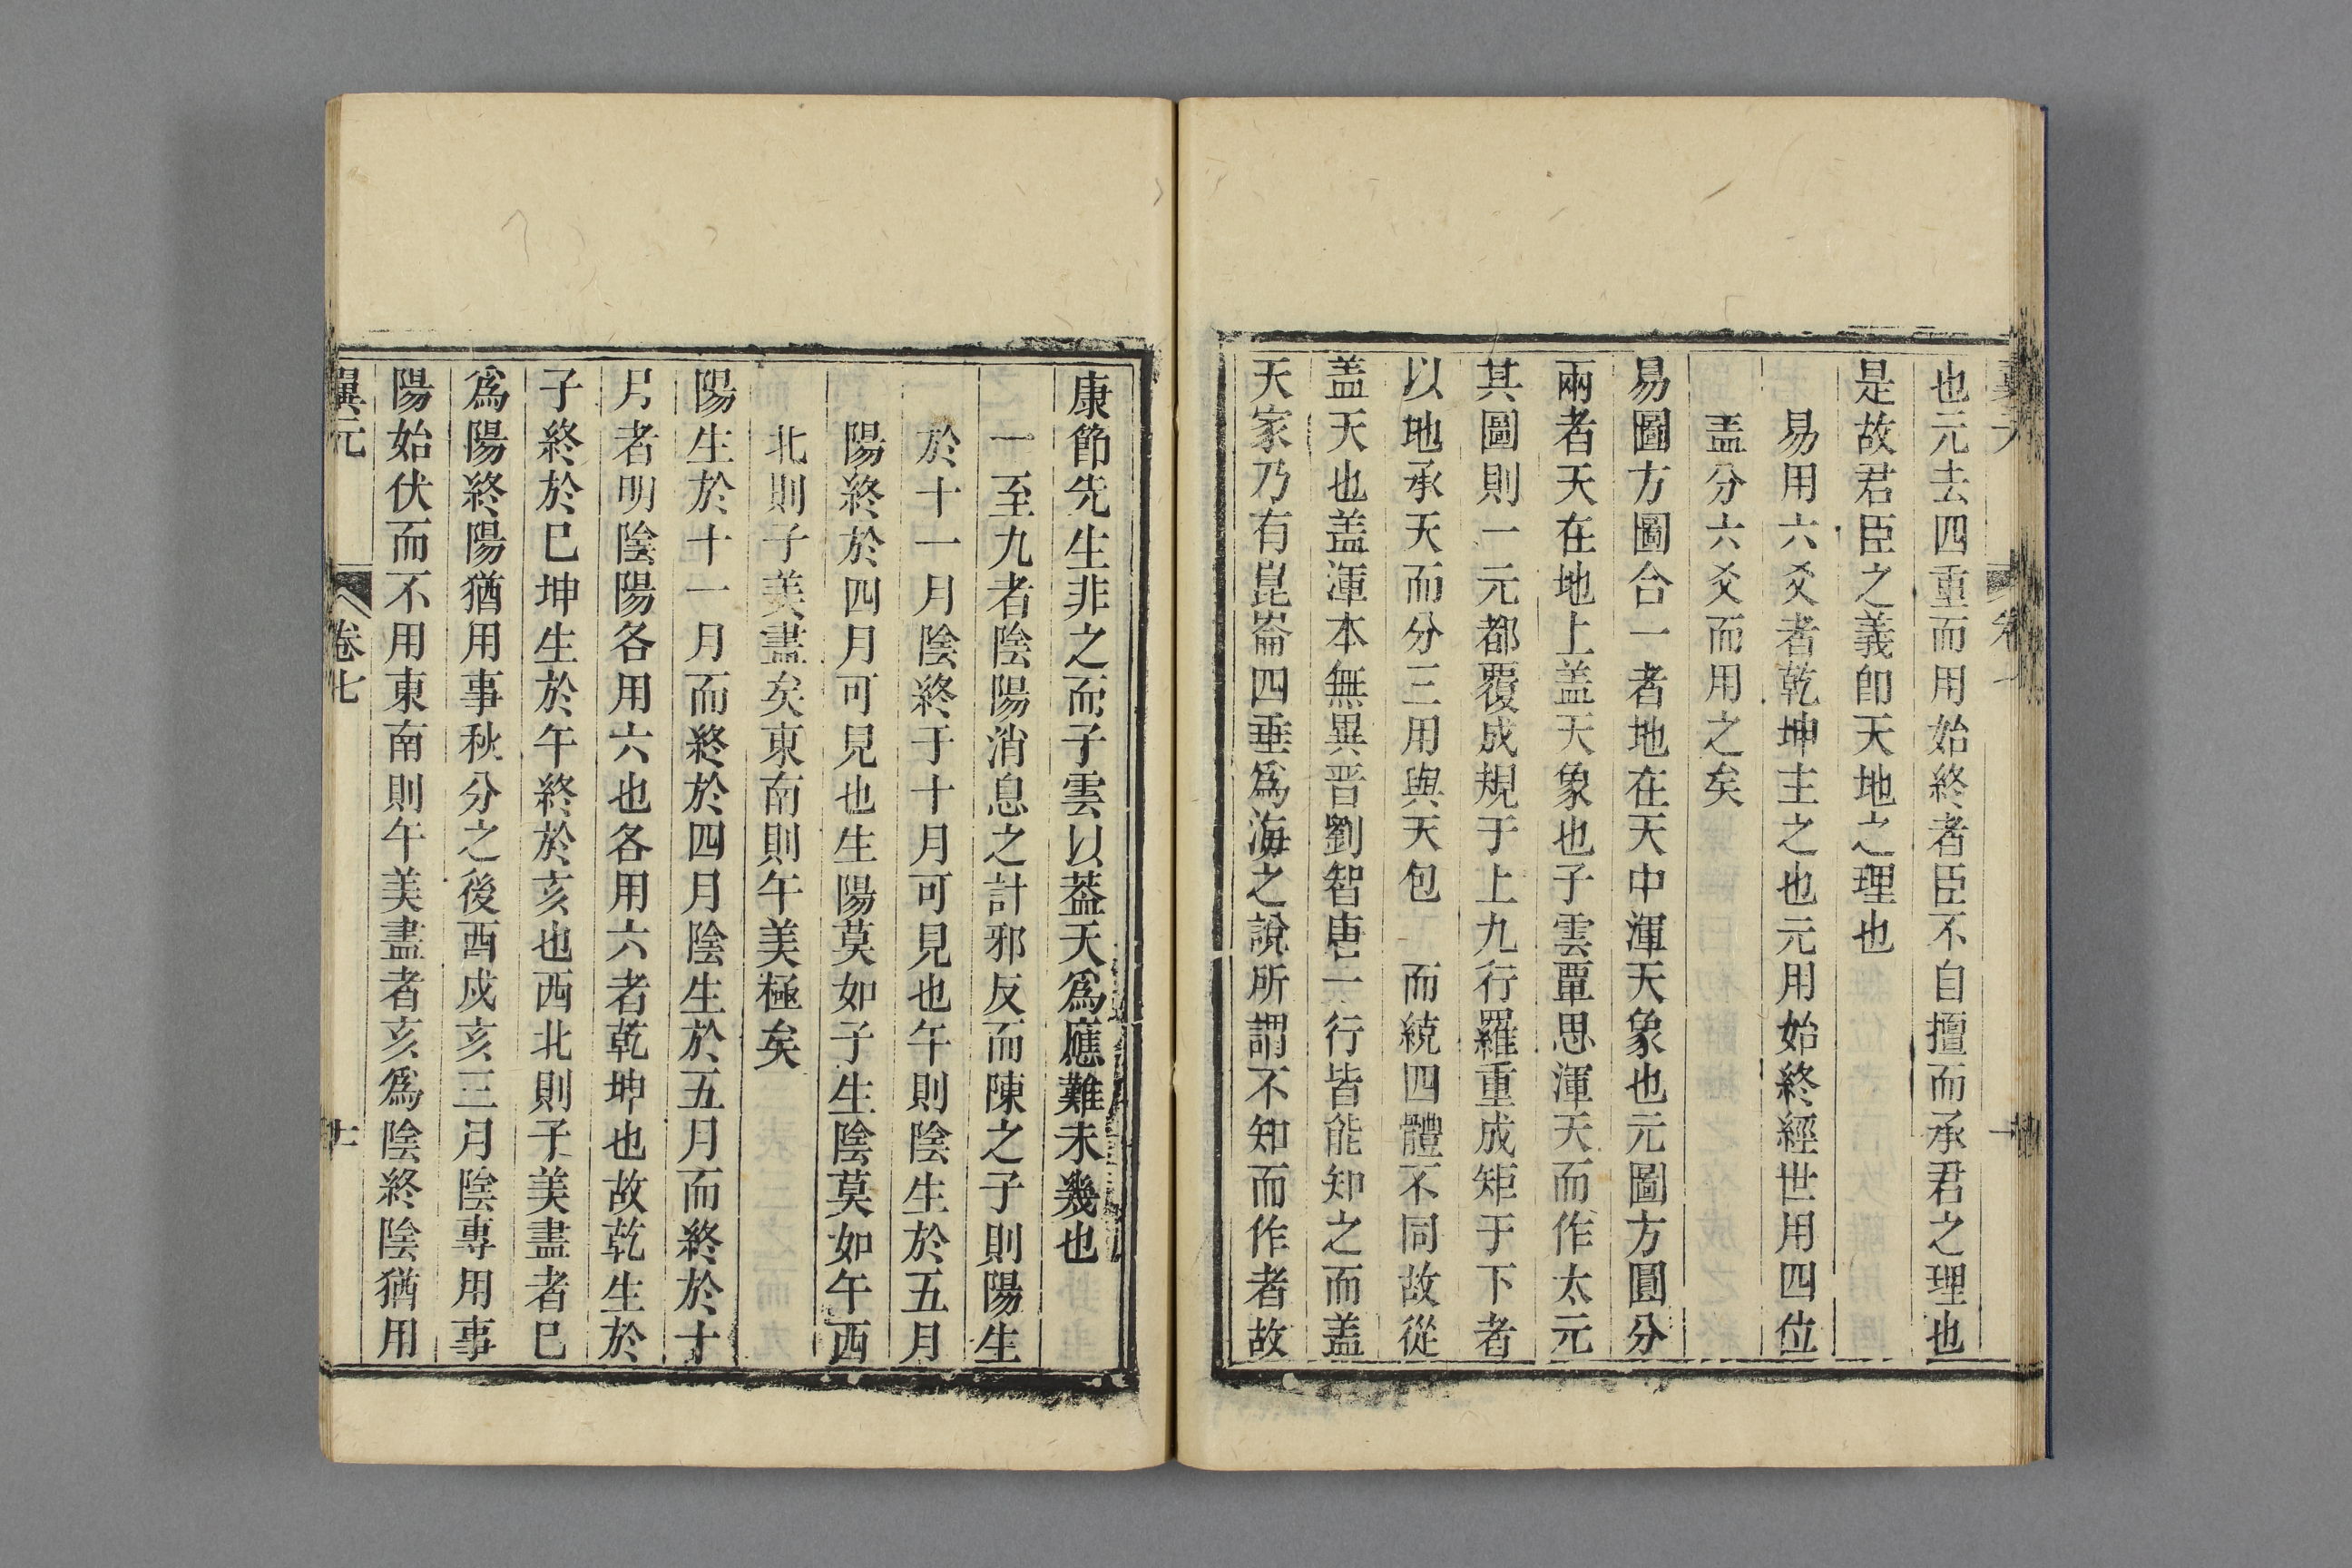 也元去四重而用始終者臣不自擅而承君之理也
是故君臣之義卽天地之理也
易用六爻者乾坤主之也元用始終經世用四位
盖分六爻而用之矣
易圖方圖合一者地在天中渾天象也元圖方圓分
兩者天在地上盖天象也子雲覃思渾天而作太元
其圖則一元都覆成規于上九行羅重成矩于下者
以地承天而分三用與天包 而統四體不同故從
盖天也盖渾本無異晋劉智唐一行皆能知之而盖
天家乃有崑崙四垂爲海之說所謂不知而作者故
康節先生非之而子雲以葢天爲應難未幾也
一至九者陰陽消息之計邪反而陳之子則陽生
於十一月陰終于十月可見也午則陰生於五月
陽終於四月可見也生陽莫如子生陰莫如午西
北則子美盡矣東南則午美極矣
陽生於十一月而終於四月陰生於五月而終於十
月者明陰陽各用六也各用六者乾坤也故乾生於
子終於巳坤生於午終於亥也西北則子美盡者巳
爲陽終陽猶用事秋分之後酉戍亥三月陰專用事
陽始伏而不用東南則午美盡者亥爲陰終陰猶用
翼元
卷七
十